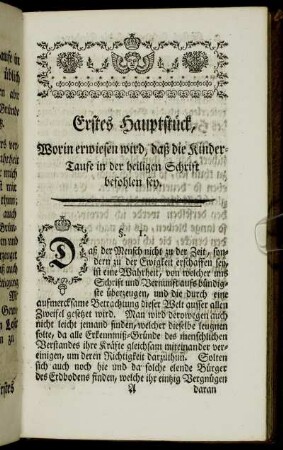 Erstes Hauptstück,
Worin erwiesen wird, daß die Kinder-
Taufe in der heiligen Schrift
befohlen sey.
§.
Daß der Mensch nicht zu der Zeit, son-
dern zu der Ewigkeit erschaffen sey,
ist eine Wahrheit, von welcher uns
Schrift und Vernunft aufs bündig-
ste überzeugen, und die durch eine
aufmercksame Betrachtung dieser Welt ausser allen
Zweifel gesetzt wird. Man wird derowegen auch
nicht leicht jemand finden, welcher dieselbe leugnen
solte, da alle Erkenntniß-Gründe des menschlichen
Verstandes ihre Kräfte gleichsam miteinander ver-
einigen, um deren Richtigkeit darzuthun. Solten
sich auch noch hie und da solche elende Bürger
des Erdbodens finden, welche ihr eintzig Vergnügen
A daran